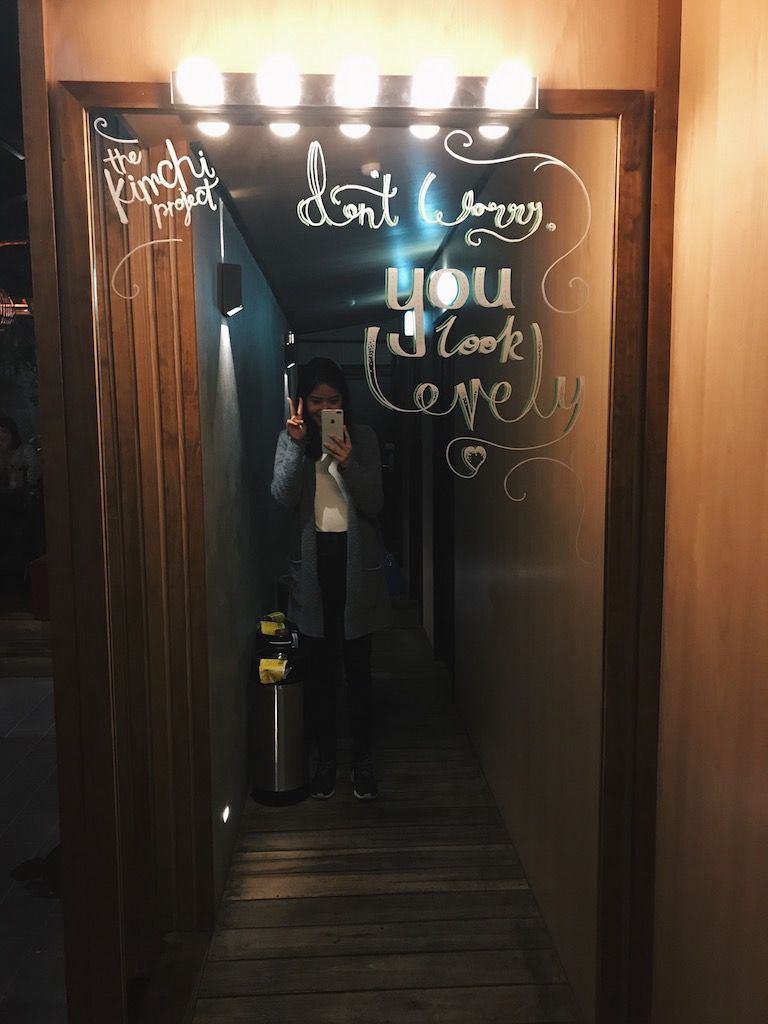 the
kimchi
project
don't worry.
you
look
lovely